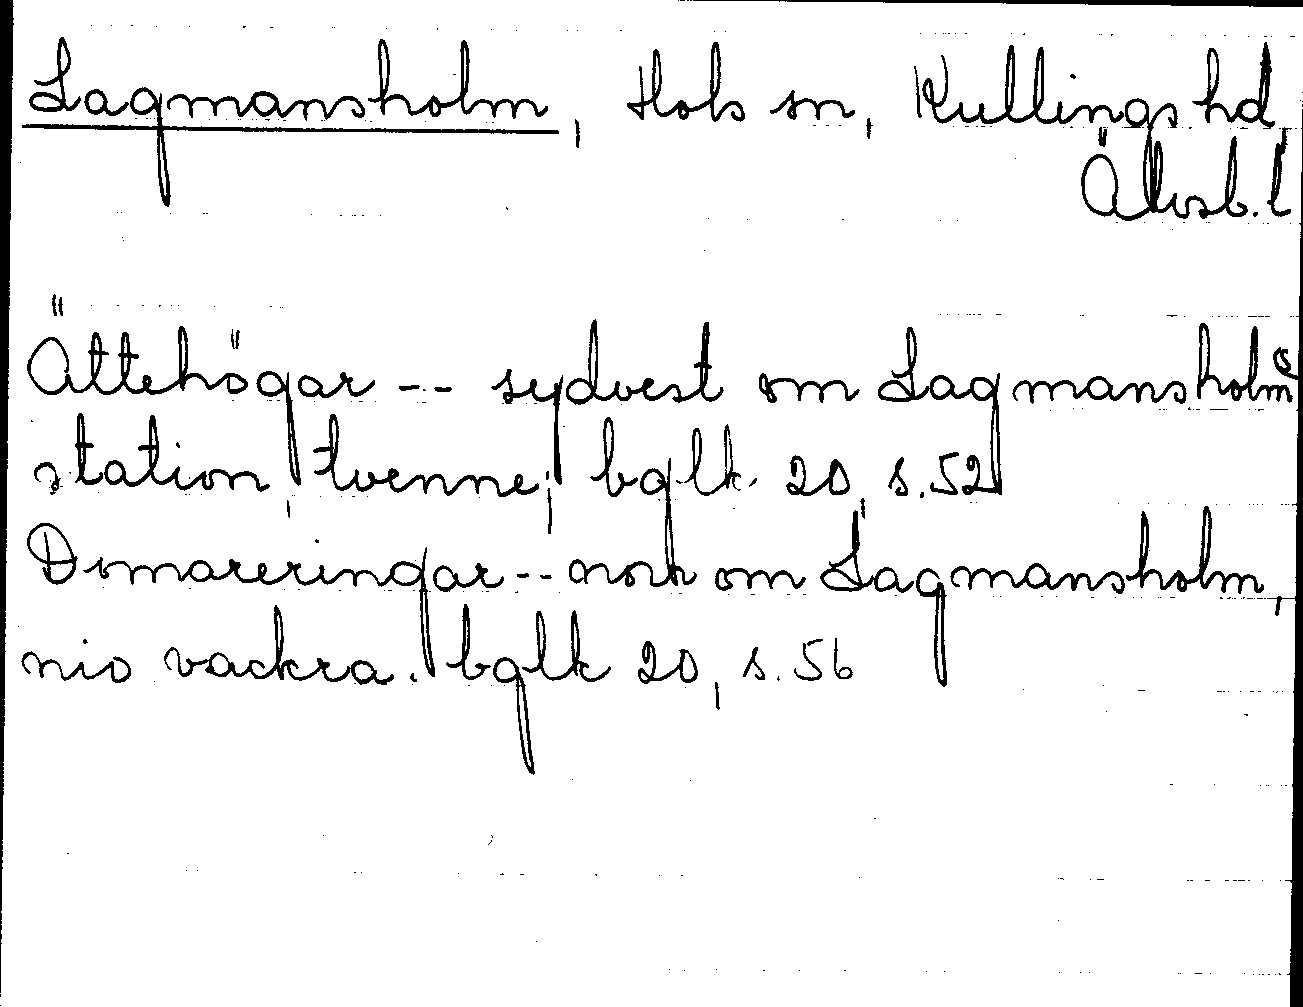 Lagmansholm, Hols sn, Kullings hd,
Älvsb. l
Ättehögar -- sydvest om Lagmansholms
station, tvenne; bglk. 20, s. 52
Domareringar -- norr om Lagmansholm,
nio vackra. bglk 20, s. 56